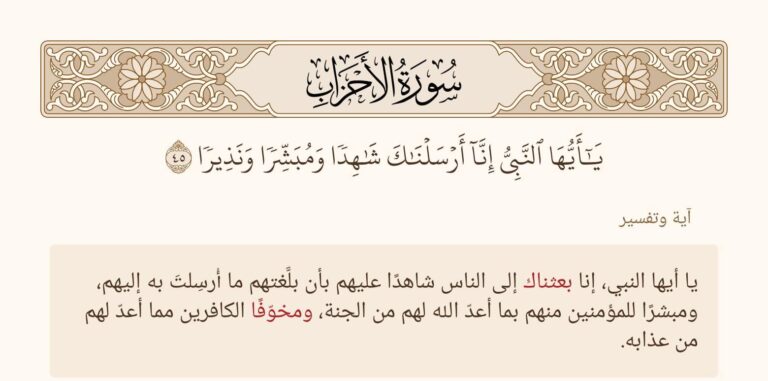 سُورَةُ الأَحْزَابِ
يَـٰٓأَيُّهَا ٱلنَّبِىُّ إِنَّآ أَرْسَلْنَـٰكَ شَـٰهِدًا وَمُبَشِّرًا وَنَذِيرًا ٤٥
آية وتفسير
يا أيها النبي، إنا بعثناك إلى الناس شاهدًا عليهم بأن بلَّغتهم ما أرسِلتَ به إليهم،
ومبشرًا للمؤمنين منهم بما أعدّ الله لهم من الجنة، ومخوّفًا الكافرين مما أعدّ لهم
من عذابه.